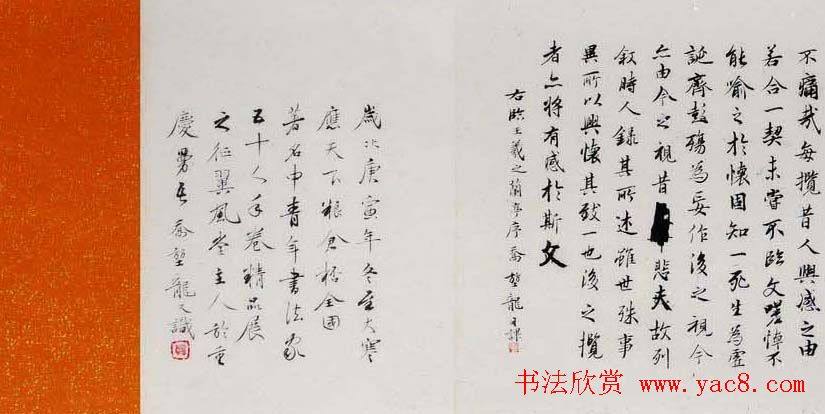 不痛哉每攬昔人興感之由
若合一契未嘗不臨文嗟悼不
能喻之於懷固知一死生為虛
誕齊彭殤為妄作後之視今
亦由今之視昔 悲夫故列
敘時人錄其所述雖世殊事
異所以興懷其致一也後之攬
者亦將有感於斯文
右臨王羲之蘭亭序 龍日課
歲次庚寅年冬至大寒
應天下粮倉 全國
著名中青年書法家
五十人手卷精品展
之征翼風堂主人於重
慶 龍又識
书法欣赏 www.yac8.com